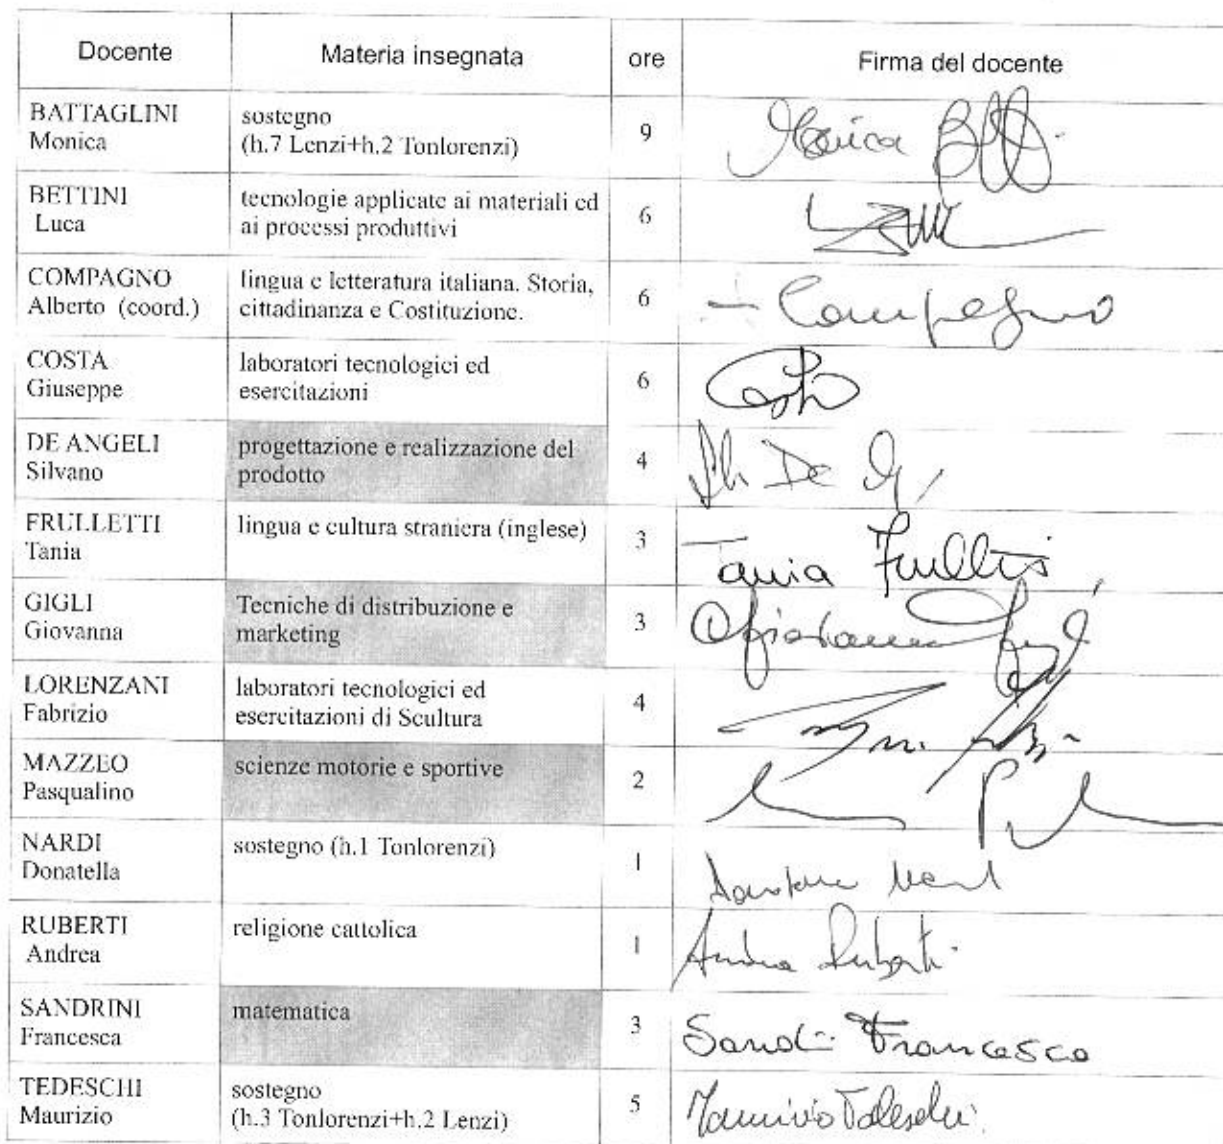 Docente Materia insegnata ore Firma del docente
BATTAGLINI
Monica
sostegno
(h.7 Lenzi+h.2 Tonlorenzi)
9
Monica
BETTINI
Luca
tecnologie applicate ai materiali ed
ai processi produttivi
6
COMPAGNO
Alberto (coord.)
lingua e letteratura italiana. Storia,
cittadinanza e Costituzione.
6
Compagno
COSTA
Giuseppe
laboratori tecnologici ed
esercitazioni
6
Costa
DE ANGELI
Silvano
progettazione e realizzazione del
prodotto
4
De
FRULLETTI
Tania
lingua e cultura straniera (inglese)
3
Tania Frulletti
GIGLI
Giovanna
Tecniche di distribuzione e
marketing
3
Giovanna
LORENZANI
Fabrizio
laboratori tecnologici ed
esercitazioni di Scultura
4
MAZZEO
Pasqualino
scienze motorie e sportive
2
NARDI
Donatella
sostegno (h.1 Tonlorenzi)
1
RUBERTI
Andrea
religione cattolica
1
Andrea Ruberti
SANDRINI
Francesca
matematica
3
Francesca
TEDESCHI
Maurizio
sostegno
(h.3 Tonlorenzi+h.2 Lenzi)
5
Maurizio Tedeschi